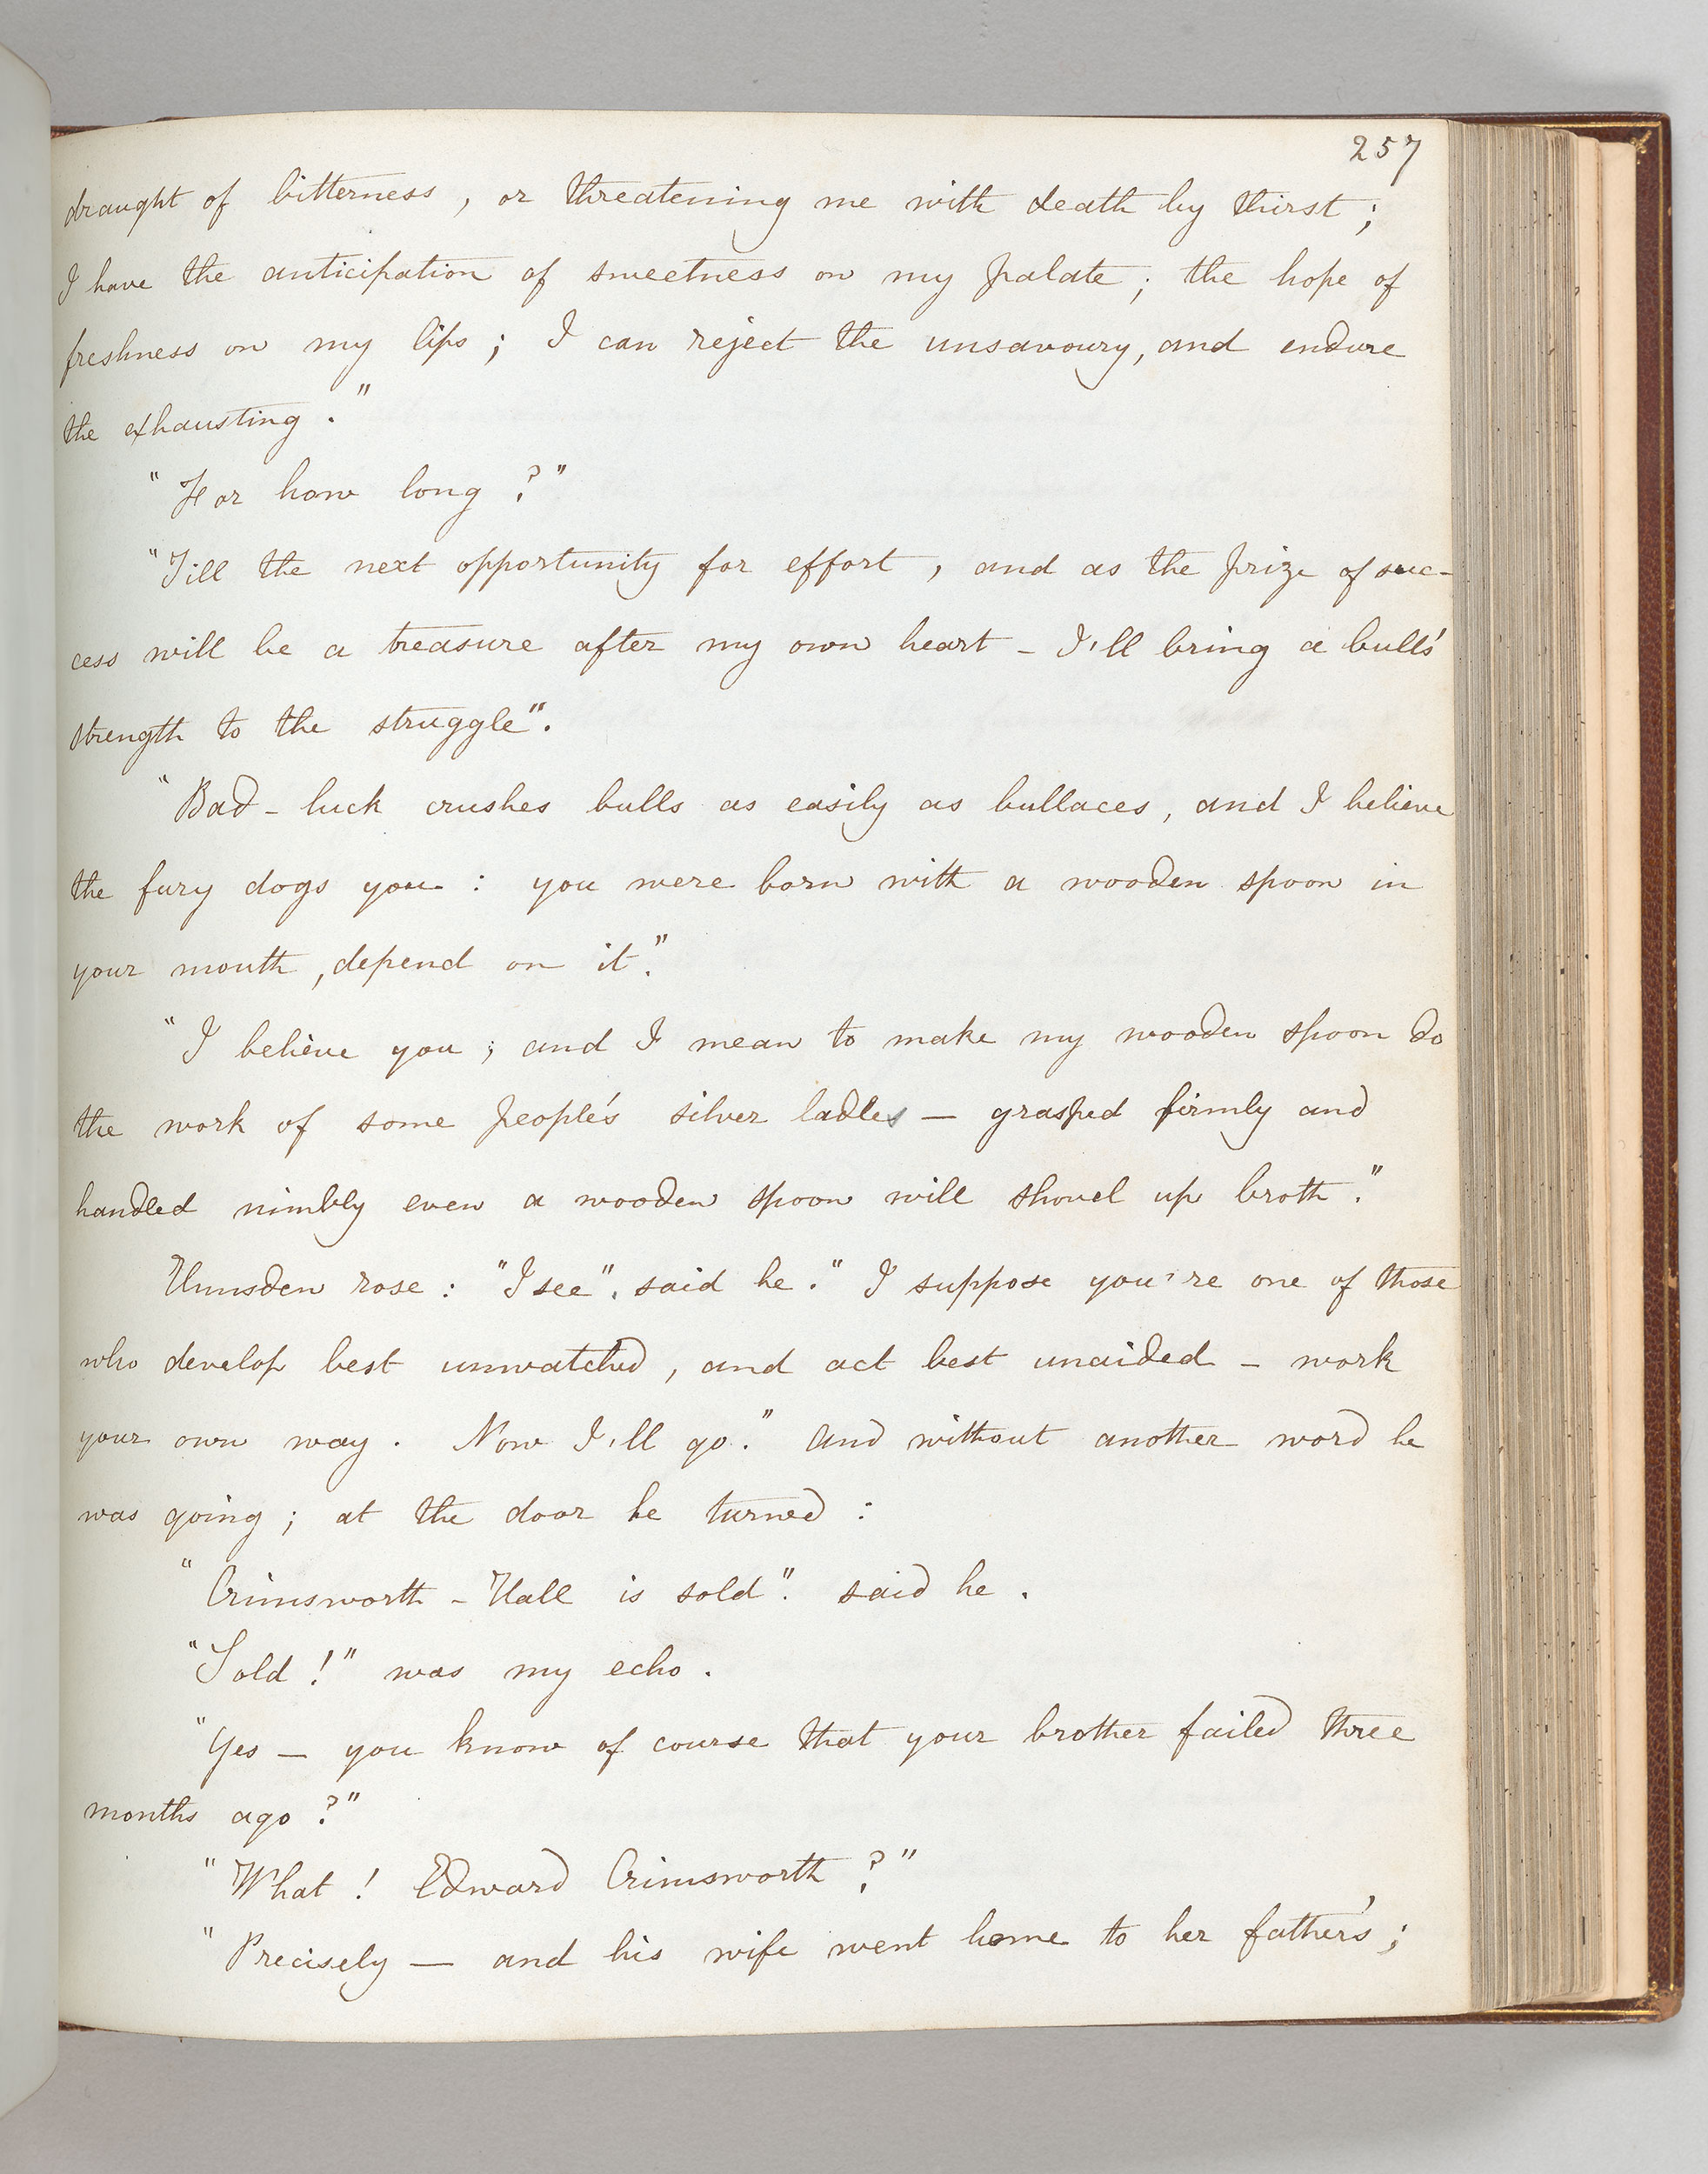 257
draught of bitterness, or threatening me with death by thirst;
I have the anticipation of sweetness on my palate; the hope of
freshness on my lips; I can reject the unsavoury, and endure
the exhausting."
"For how long?"
"Till the next opportunity for effort, and as the prize of suc-
cess will be a treasure after my own heart - I'll bring a bull's
strength to the struggle".
"Bad-luck crushes bulls as easily as bullaces, and I believe
the fury dogs you: you were born with a wooden spoon in
your mouth, depend on it."
"I believe you; and I mean to make my wooden spoon do
the work of some people's silver ladles — grasped firmly and
handled nimbly even a wooden spoon will shovel up broth."
Hunsden rose: "I see", said he. "I suppose you're one of those
who develop best unwatched, and act best unaided - work
your own way. Now I'll go." And without another word he
was going; at the door he turned:
"Crimsworth-Hall is sold". said he.
"Sold!" was my echo.
"Yes — you know of course that your brother failed three
months ago?"
"What! Edward Crimsworth?"
"Precisely — and his wife went home to her father's;